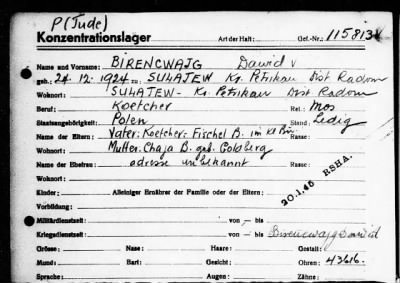 P (Jude)
Konzentrationslager Art der Haft: Gef.-Nr.: 115813
Name und Vorname: BIRENCWAJG Dawid
geb.: 24.12.1924 zu: SULAJEW Kr. Petrikau Dist Radom
Wohnort: SULAJEW - Kr. Petrikau Dist Radom
Beruf: Koetcher Rel.: Mos
Staatsangehörigkeit: Polen Stand: Ledig
Name der Eltern: Vater: Koetcher: Fischel B. im Rasse:
Wohnort: Mutter: Chaja B. geb. Goldberg
Name der Ehefrau: adresse unbekannt Rasse:
Wohnort:
Kinder: Alleiniger Ernährer der Familie oder der Eltern:
Vorbildung: 20.1.45 RSHA.
Militärdienstzeit: von — bis
Kriegsdienstzeit: von — bis Birencwajg Dawid
Grösse: Nase: Haare: Gestalt:
Mund: Bart: Gesicht: Ohren: 43616.
Sprache: Augen: Zähne: